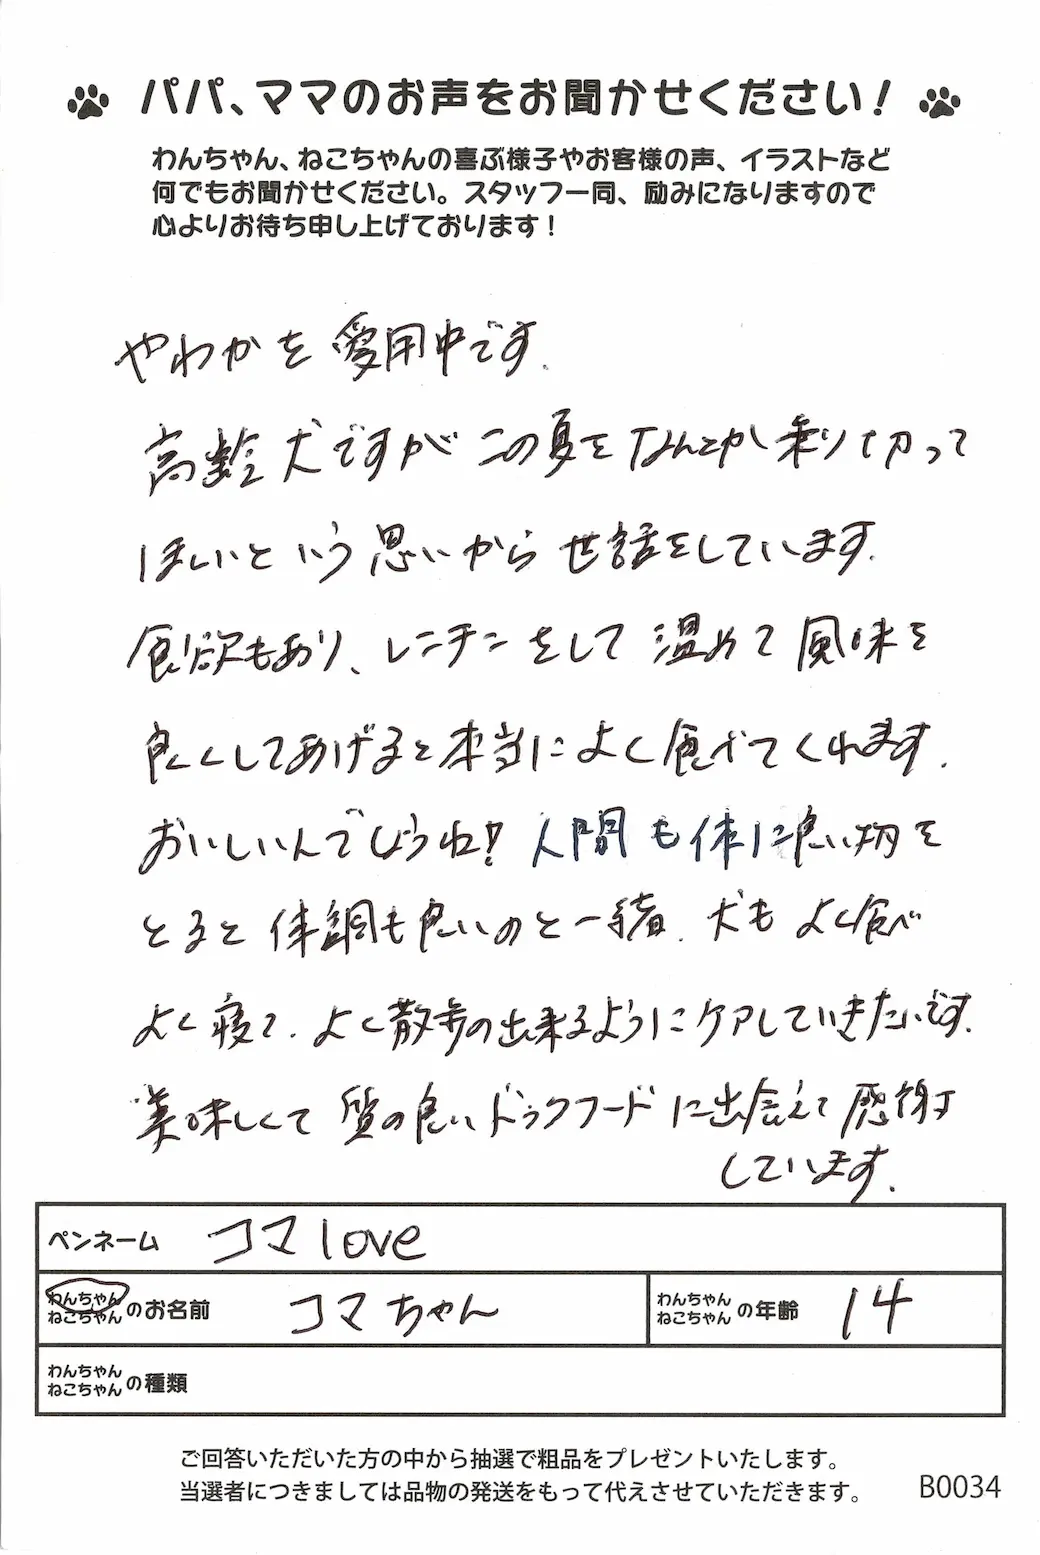 パパ、ママのお声をお聞かせください！
わんちゃん、ねこちゃんの喜ぶ様子やお客様の声、イラストなど
何でもお聞かせください。スタッフ一同、励みになりますので
心よりお待ち申し上げております！
やわかを愛用中です.
高齢犬ですがこの夏をなんとか乗り切って
ほしいという思いから世話をしています.
食欲もあり、レンチンをして温めて風味を
良くしてあげると本当によく食べてくれます.
おいしいんでしょうね! 人間も体に良い物を
とると体調も良いのと一緒. 犬もよく食べ
よく寝て、よく散歩の出来るようにケアしていきたいです.
美味しくて質の良いドックフードに出会えて感謝
しています.
ペンネーム コマlove
わんちゃん
ねこちゃん の お名前 コマちゃん わんちゃん
ねこちゃん の年齢 14
わんちゃん
ねこちゃん の種類
ご回答いただいた方の中から抽選で粗品をプレゼントいたします。
当選者につきましては品物の発送をもって代えさせていただきます。 B0034